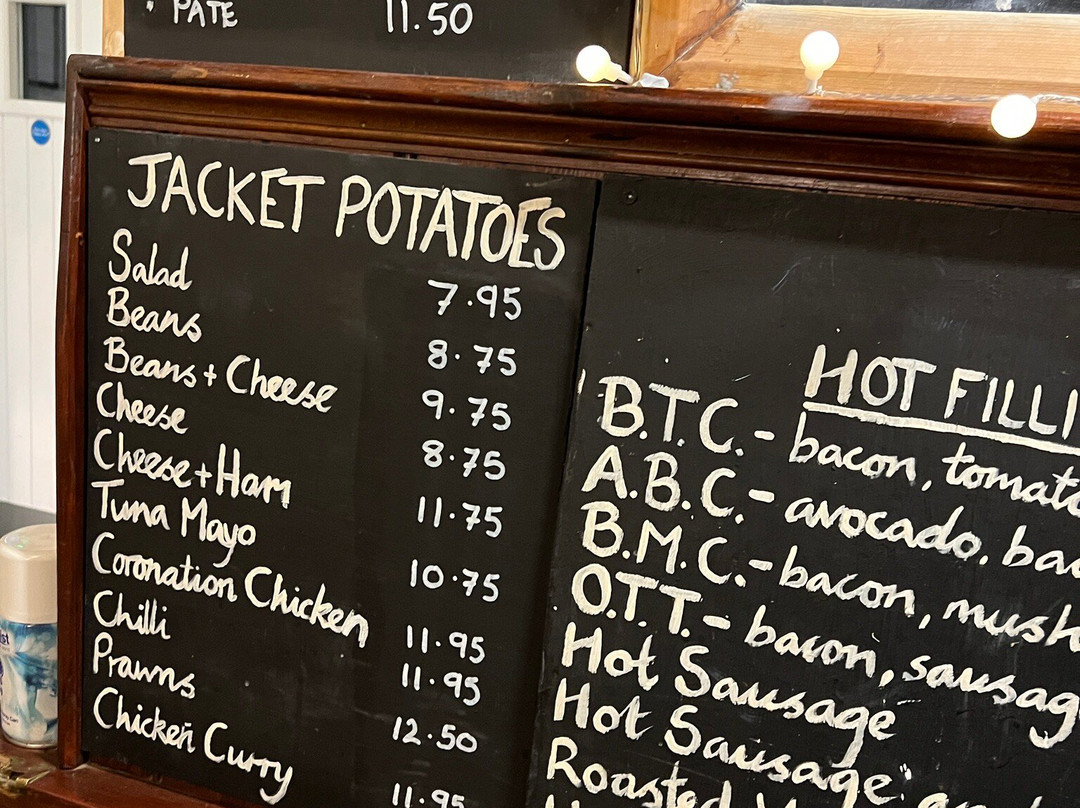 PATE 11.50
JACKET POTATOES
Salad 7.95
Beans 8.75
Beans + Cheese 9.75
Cheese 8.75
Cheese + Ham 11.75
Tuna Mayo 10.75
Coronation Chicken 11.95
Chilli 11.95
Prawns 12.50
Chicken Curry 11.95
HOT FILLI
B.T.C. - bacon, tomato
A.B.C. - avocado. bac
B.M.C. - bacon, mush
O.T.T. - bacon, sausag
Hot Sausage
Hot Sausage
Roasted